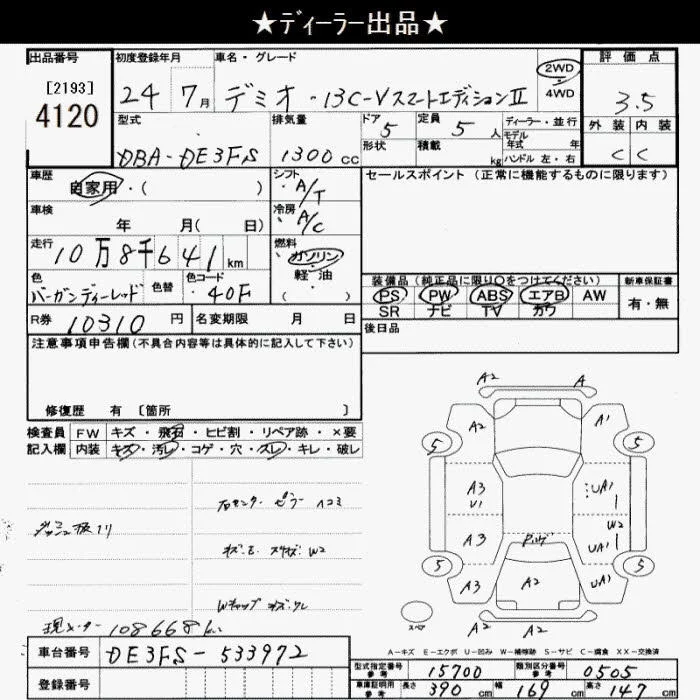 ★ディーラー出品★
出品番号 初度登録年月 車名・グレード 評価点
[2193]
4120
24 7月 デミオ・13C-VスマートエディションⅡ 2WD 4WD 3.5
型式 排気量 ドア 定員 ディーラー・並行 外装 内装
DBA-DE3FS 1300cc 5 5人 モデル年式 年 C C
形状 積載 kg ハンドル 左・右
車歴 シフト セールスポイント(正常に機能するものに限ります)
自家用・( ) A/T
車検 冷房
年 月( 日) A/C
走行 燃料
10万8千641km ガソリン・軽・油
色 色替 色コード ( )
バーガンディーレッド 40F
装備品(純正品に限り○をつけてください) 新車保証書
PS PW ABS エアB AW 有・無
SR ナビ TV カワ
R券 10310円 名変期限 月 日 後日品
注意事項申告欄(不具合内容等は具体的に記入して下さい)
修復歴 有 [箇所 ]
検査員 FW キズ・飛石・ヒビ割・リペア跡・×要
記入欄 内装 キズ・汚レ・コゲ・穴・スレ・キレ・破レ
右センターピラー凹コミ
ダッシュ板凹
Wキャップ キズ・ワレ
現メーター 108668km
A2 A
A2 A1
5 5
A3 UA1
U1
W2
A3 UA1
5 5
A3 A2 UA1
A2 A2
スペア
A-キズ E-エクボ U-凹み W-補修跡 S-サビ C-腐食 XX-交換済
車台番号 DE3FS-533972
登録番号
型式指定番号 参考 15700 類別区分番号 参考 0505
車庫証明用 参考 長さ 390cm 幅 169cm 高さ 147cm